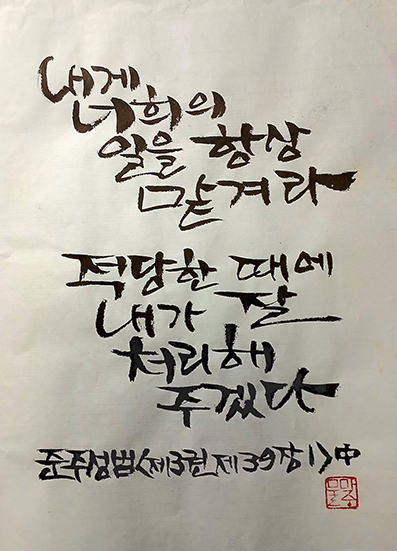 내게
너희의
일을 항상
맡겨라
적당한 때에
내가 잘
처리해
주겠다
준주성범<제3권 제39장1>中